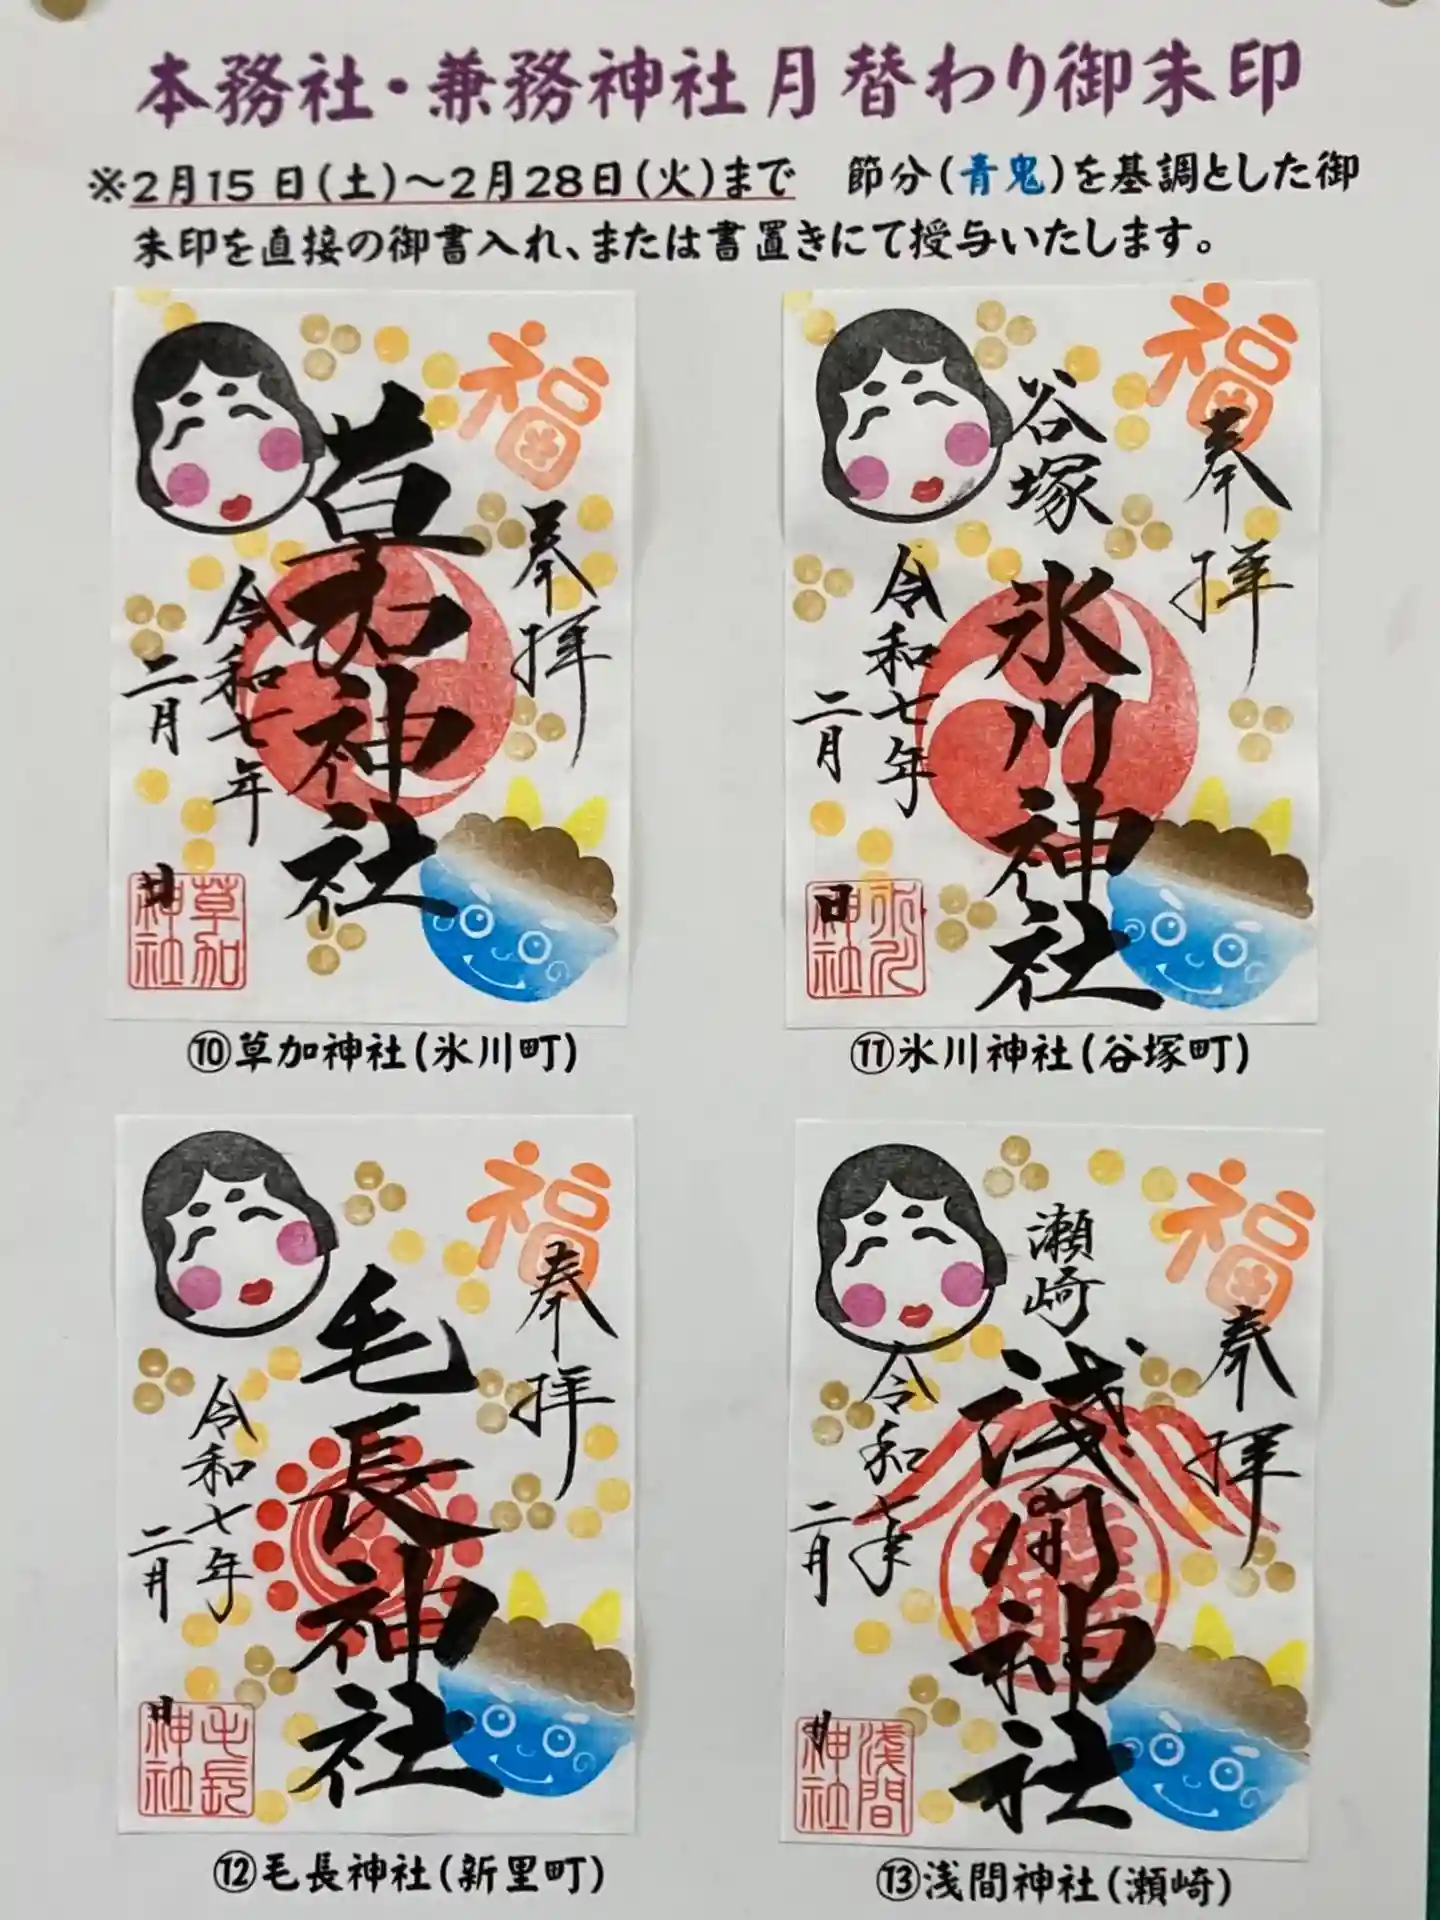 本務社・兼務神社月替わり御朱印
※2月15日(土)～2月28日(火)まで　節分(青鬼)を基調とした御
朱印を直接の御書入れ、または書置きにて授与いたします。
福
奉拝
草加神社
令和七年
二月
日
草加
神社
⑩草加神社(氷川町)
福
奉拝
谷塚
氷川神社
令和七年
二月
日
氷川
神社
⑪氷川神社(谷塚町)
福
奉拝
毛長神社
令和七年
二月
日
毛長
神社
⑫毛長神社(新里町)
福
奉拝
瀬崎
浅間神社
令和七年
二月
日
浅間
神社
⑬浅間神社(瀬崎)